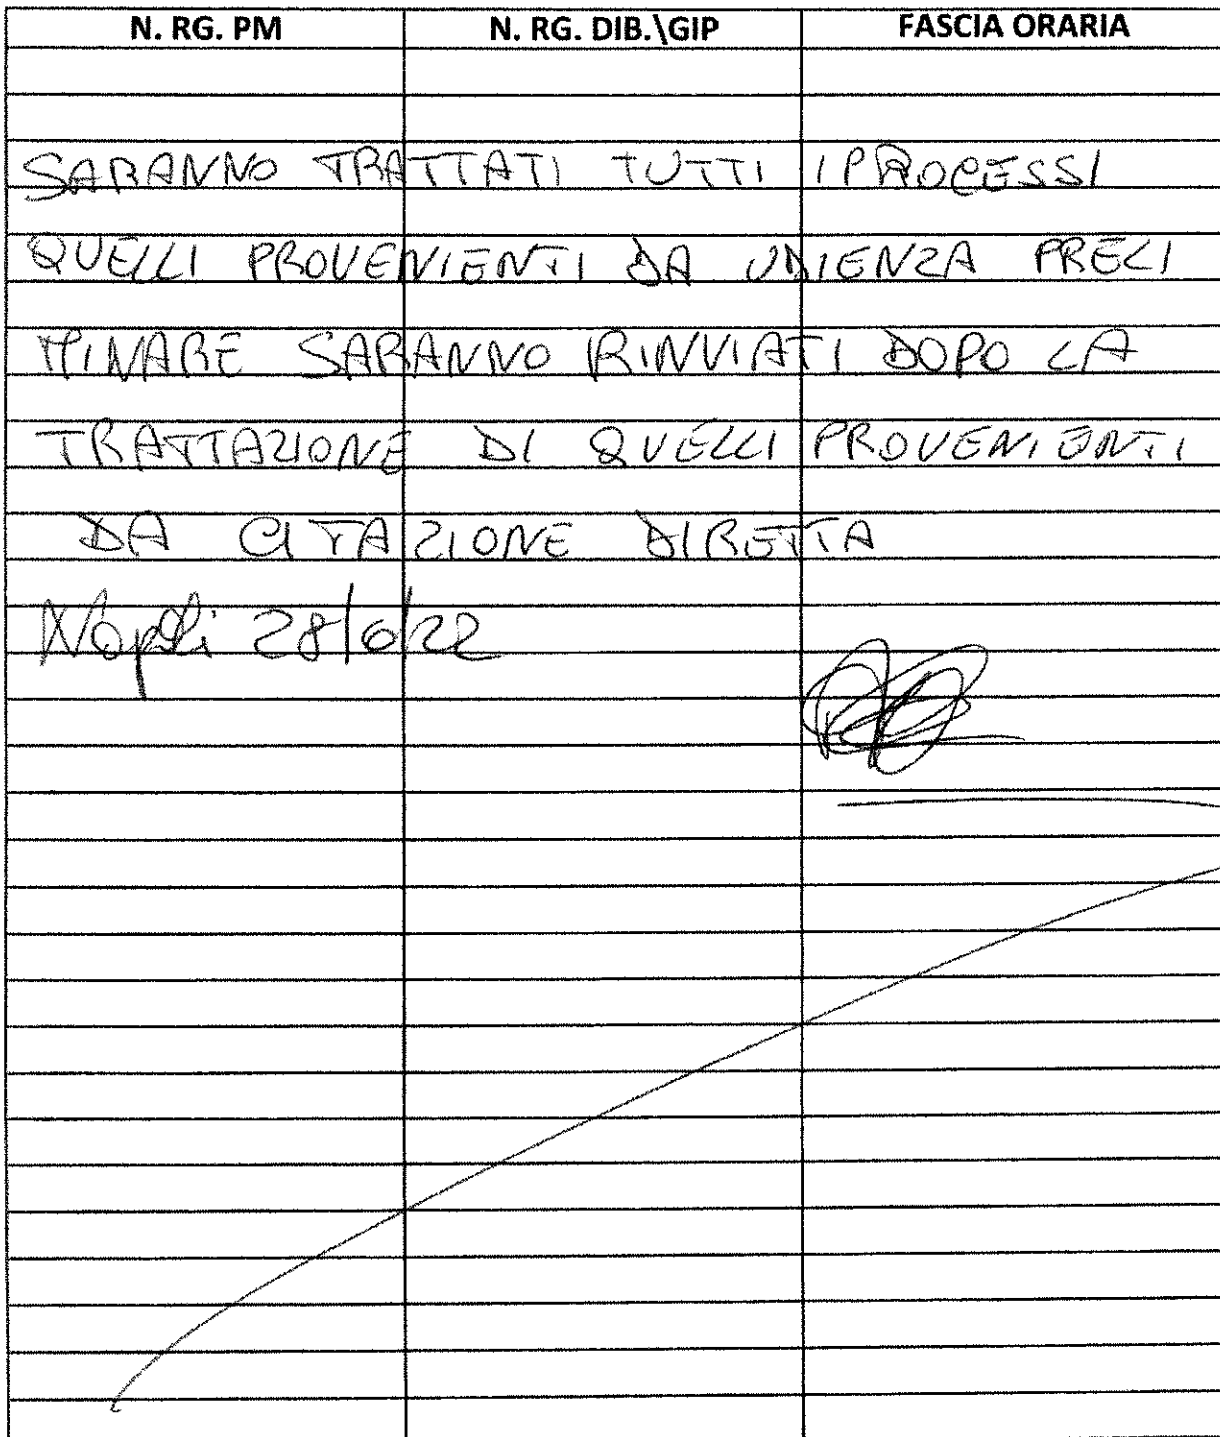 N. RG. PM N. RG. DIB.\GIP FASCIA ORARIA
SARANNO TRATTATI TUTTI I PROCESSI
QUELLI PROVENIENTI DA UDIENZA PRELI
MINARE SARANNO RINVIATI DOPO LA
TRATTAZIONE DI QUELLI PROVENIENTI
DA CITAZIONE DIRETTA
Napoli 28/6/22